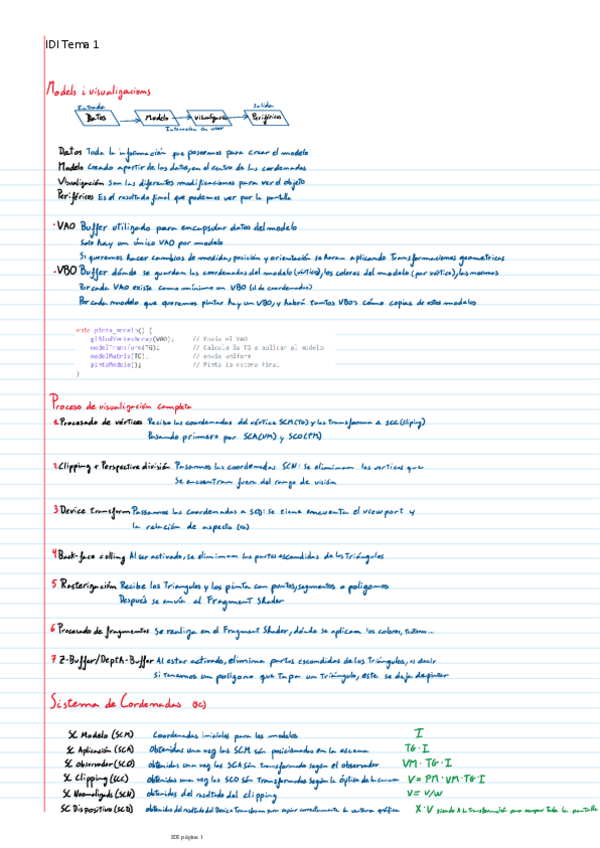 IDI Tema 1
Models i visualizacions
Entrada
Salida
Datos Modelo visualización Periféricos
Interacción con user
Datos Toda la información que poseemos para crear el modelo
Modelo Creado a partir de los datos, en el centro de las coordenadas
Visualización Son las diferentes modificaciones para ver el objeto
Periféricos Es el resultado final que podemos ver por la pantalla
· VAO Buffer utilizado para encapsular datos del modelo
Solo hay un único VAO por modelo
Si queremos hacer cambios de medida, posición y orientación se haran aplicando Transformaciones geometricas
· VBO Buffer dónde se guardan las coordenadas del modelo (vértice), los colores del modelo (por vértice), las normas
Por cada VAO existe como mínimo un VBO (el de coordenadas)
Por cada modelo que queremos pintar hay un VBO, y habrá tantos VBOs cómo copias de estos modelos
void pinta_modelo() {
glBindVertexArray(VAO); // Envía el VAO
modelTransform(TG); // Calcula la TG a aplicar al modelo
modelMatrix(TG); // envía uniform
pintaModelo(); // Pinta la escena final
}
Proceso de visualización completa
1 Procesado de vértices Recibe las coordenadas del vértice SCM(TG) y las transforma a SCC (cliping)
Pasando primero por SCA(VM) y SCO(PM)
2 Clipping + Perspective división Pasamos las coordenadas SCN: Se eliminan los vertices que
se encuentran fuera del rango de visión
3 Device transform Passamos las coordenadas a SCD: se tiene en cuenta el viewport y
la relación de aspecto (ra)
4 Back-face culling Al ser activado, se eliminan las partes escondidas de los Triángulos
5 Rasterización Recibe los Triangulos y los pinta con puntos, segmentos o poligonos
Después se envía al Fragment Shader
6 Procesado de fragmentos Se realiza en el Fragment Shader, dónde se aplican los colores, ...
7 Z-Buffer/Depth-Buffer Al estar activado, elimina partes escondidas de los Triángulos, es decir
si tenemos un poligono que tapa un Triángulo, este se deja de pintar
Sistema de Cordenadas (SC)
SC Modelo (SCM) Coordenadas iniciales para los modelos I
SC Aplicación (SCA) Obtenidas una vez las SCM són posicionadas en la escena TG · I
SC Observador (SCO) obtenidas una vez las SCA són Transformadas según el observador VM · TG · I
SC Clipping (SCC) obtenidas una vez las SCO són Transformadas según la óptica de la camara V = PM · VM · TG · I
SC Normalizado (SCN) obtenidos del resultado del clipping V = V/w
SC Dispositivo (SCD) obtenidos del resultado del Device Transform para copiar correctamente la ventana gráfica X · V siendo X la transformación para ocupar toda la pantalla
IDI página 1